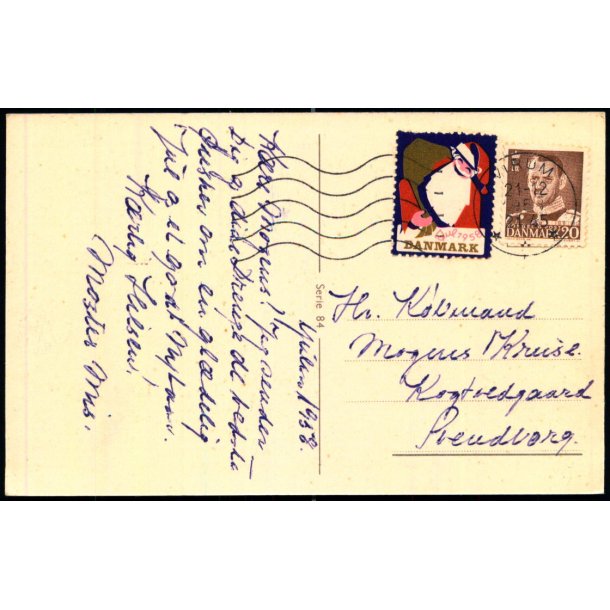 Julen 1958.
Kære Mogens! Jeg sender
Dig og dine Drenge de bedste
Ønsker om en glædelig
Jul og et godt Nytaar.
Kærlig Hilsen!
Moster Mis.
Serie 84
Jul 1958
DANMARK
21-12
DANMARK 20
Hr. Købmand
Mogens Kruse.
Kogtvedgaard
Svendborg.